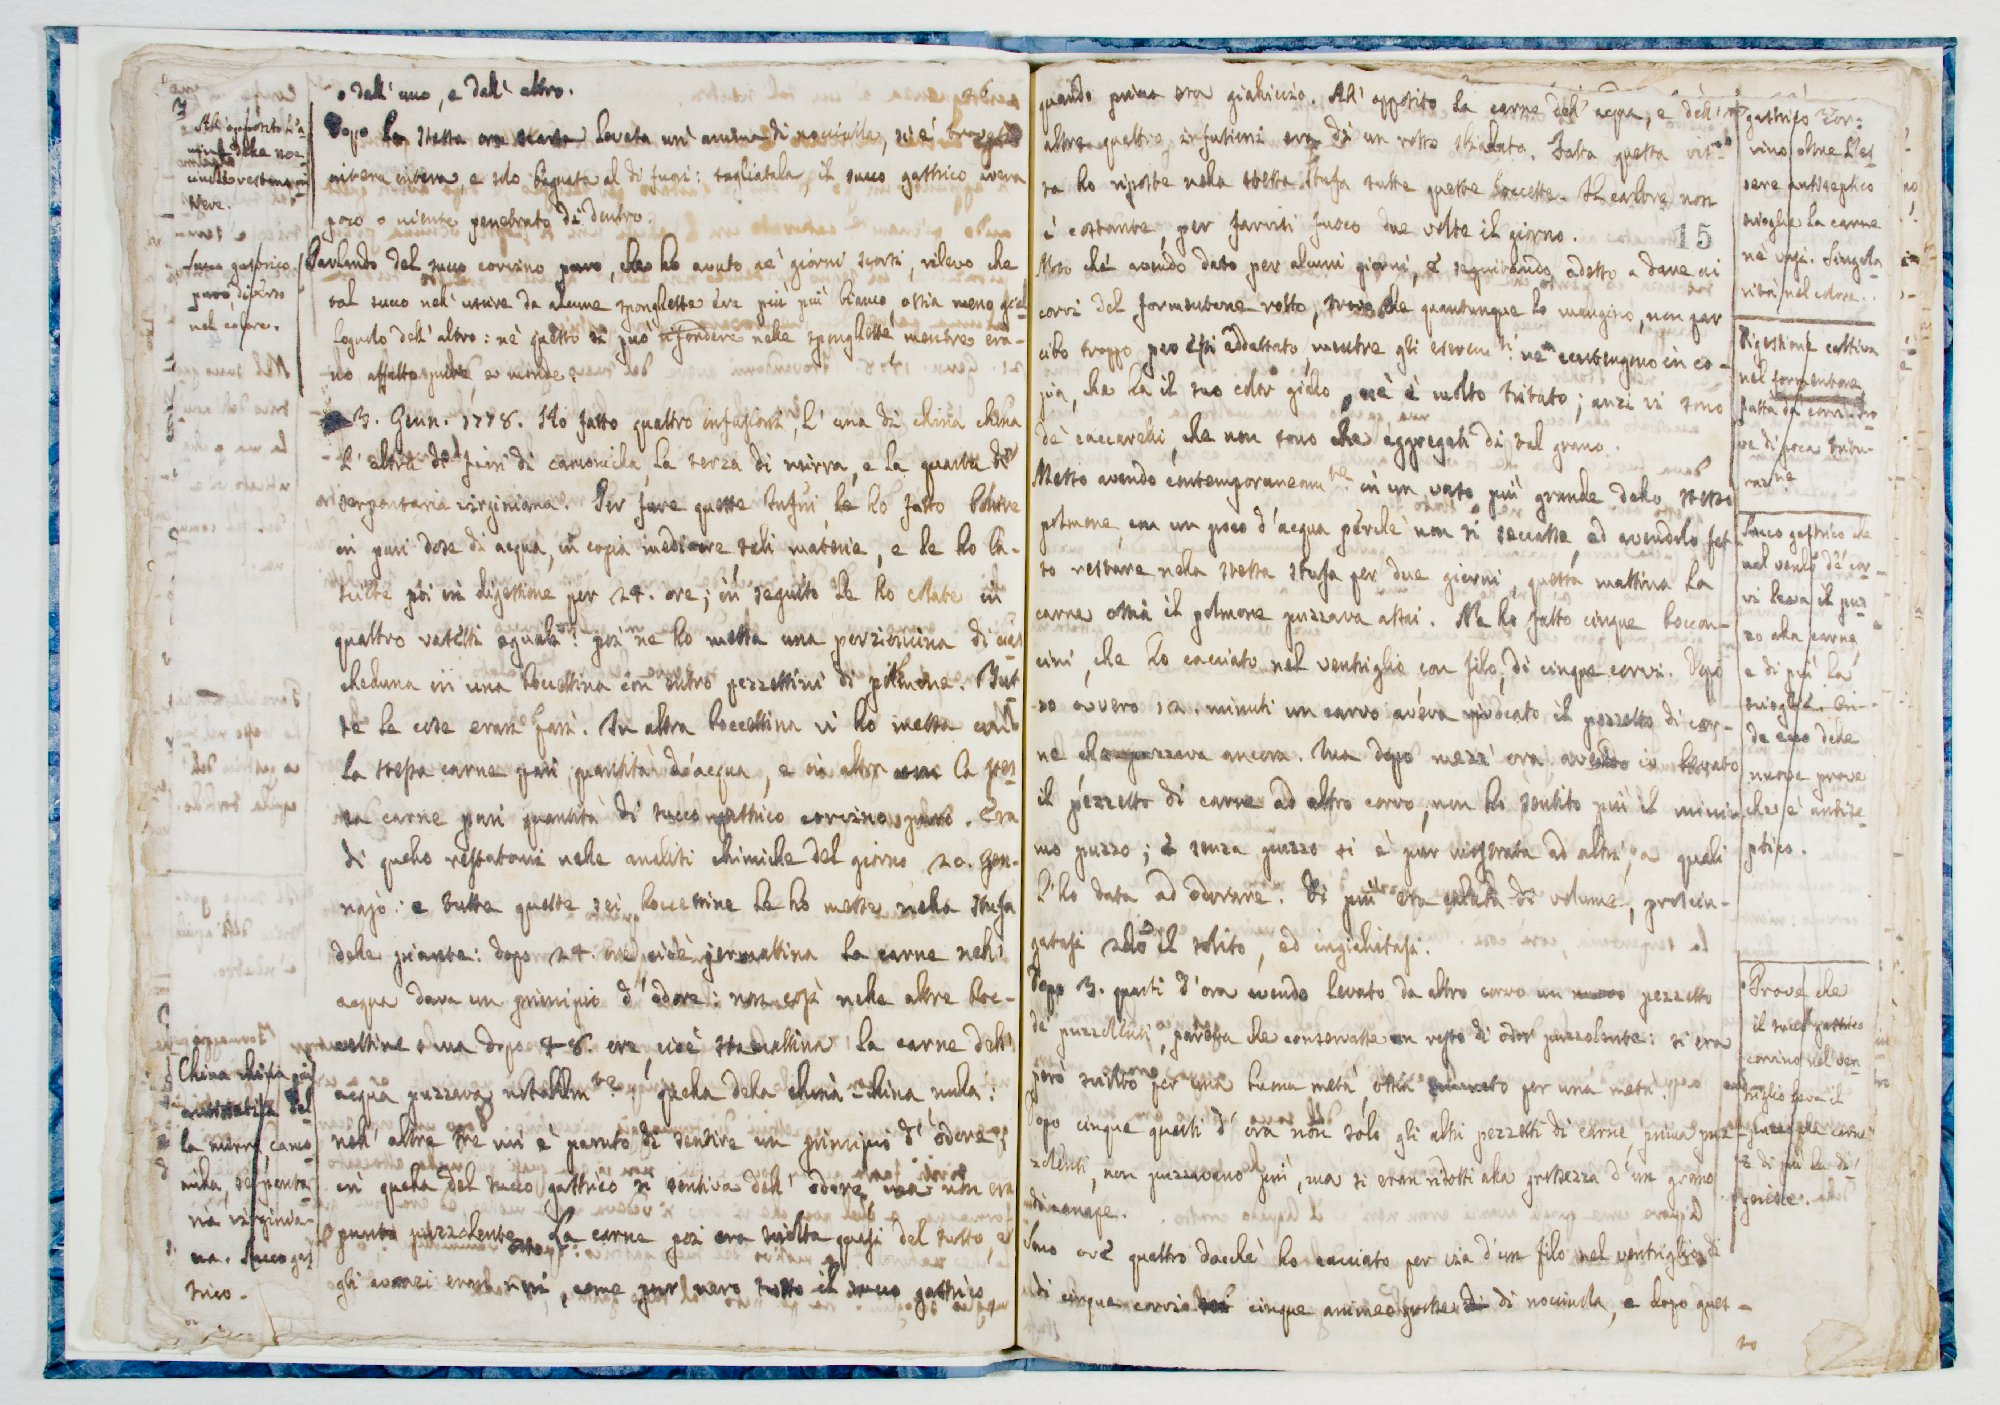 o dell' uno, e dell' altro.
Dopo la stessa ora levata un' anima di nocciuola, si è trovata
intera intera, e solo bagnata al di fuori: tagliatala, il succo gastrico aveva
poco o niente penetrato di dentro.
All' opposito l'a
nima delle noc
ciuole restano in
tere.
Parlando del succo corvino puro, che ho avuto ne' giorni scorsi, rilevo che
tal succo nell' uscire da alcune sponghette era più più bianco ossia meno gial
lognolo dell' altro: nè questo si può rifondere nelle sponghette mentre era-
no affatto pulite, e monde.
Succo gastrico
puro diverso
nel colore.
3. Genn. 1778. Ho fatto quattro infusioni, l' una di china china
l' altra di fiori di camomilla, la terza di mirra, e la quarta di
serpentaria virginiana. Per fare queste infusi le ho fatto bollire
in pari dose di acqua, in copia mediocre tali materie, e le ho la-
sciate poi in digestione per 24. ore; in seguito le ho colate in
quattro vasetti eguali: poi ne ho messa una porzioncina di cias
cheduna in una boccettina con entro pezzettini di polmone. Tut
te le cose eran pari. In altra boccettina vi ho messa con
la stessa carne pari quantità d'acqua, e in altra la stes
sa carne pari quantità di succo gastrico corvino puro. Era
di quello restatomi nelle analisi chimiche del giorno 20. gen-
najo: e tutte queste sei boccettine le ho messe nella stufa
delle piante: dopo 24. ore, cioè jermattina la carne nell'
acqua dava un principio d' odore: non così nelle altre boc-
cettine ma dopo 48. ore, cioè stamattina la carne dell'
acqua puzzava notabilmte, quella della china-china nulla:
nell' altre tre mi è paruto di sentire un principio d' odore;
in quella del succo gastrico si sentiva dell' odore, ma non era
punto puzzolente. La carne poi era sciolta quasi del tutto, e
gli avanzi eran neri, come pur nero tutto il succo gastrico
China china più
antisettica del
la mirra, camo
milla, serpenta-
ria virginia-
na. Succo gas
trico.
quando prima era gialliccio. All' opposito la carne dell' acqua, e dell'
altre quattro infusioni era di un rosso sbiadato. Fatta questa vis
ta ho riposte nella stessa stufa tutte queste boccette. Il calore non
è costante, per farvisi fuoco due volte il giorno.
15
Noto che avendo dato per alcuni giorni, e seguitando adesso a dare ai
corvi del formentone rotto, trovo che quantunque lo mangino, non par
cibo troppo per essi addattato, mentre gli escrem.ti ne contengono in co-
pia, che ha il suo color giallo, nè è molto tritato; anzi vi sono
de' caccarelli, che non sono che aggregati di tal grano.
Messo avendo contemporaneamte in un vaso più grande dello stesso
polmone, con un poco d'acqua perchè non si seccasse, ed avendolo fat-
to restare nella stessa stufa per due giorni, questa mattina la
carne ossia il polmone puzzava assai. Ne ho fatto cinque boccon-
cini, che ho cacciato nel ventriglio con filo, di cinque corvi. Dopo
10 ovvero 12. minuti un corvo aveva vomitato il pezzetto di car-
ne che puzzava ancora. Ma dopo mezz' ora avendo io levato
il pezzetto di carne ad altro corvo, non ho sentito più il minim
mo puzzo; e senza puzzo si è pur mostrata ad altri, a quali
l' ho data ad odorare. Di più era calata di volume,
gatasi il solito, ed ingiallitasi.
Dopo 3. quarti d' ora avendo levato da altro corvo un pezzetto
de' puzzolenti, pareva che conservasse un resto di odor puzzolente: si era
però sciolto per una buona metà, ossia per una metà.
Dopo cinque quarti d' ora non solo gli altri pezzetti di carne, prima puz
zolenti, non puzzavano più, ma si eran ridotti alla grossezza d' un grano
di canape.
Sono ore quattro dacchè ho cacciato per via d' un filo nel ventriglio di
di cinque corvi cinque anime di nocciuola, e dopo ques-
to
gastrico Cor-
vino oltre l'es
sere antiseptico
scioglie la carne
nè vasi. Singola
rità nel colore.
Digestione cattiva
nel formentone
fatta da corvi
ve di poca tritu-
razne
Succo gastrico che
nel ventr de' cor-
vi leva il puz
zo alla carne,
e di più la
scioglie. Qui-
di ecco delle
nuove prove
che è antise-
ptico.
Prove che
il succo gastrico
corvino nel ven-
triglio leva il
puzzo alla carne
e di più la di-
gerisce.